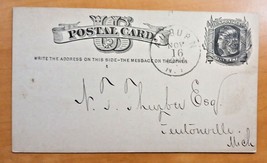 US
POSTAL CARD
WRITE THE ADDRESS ON THIS SIDE - THE MESSAGE ON THE OTHER
NOV
16
N. T. Thurber Esq.
Fentonville,
Mich